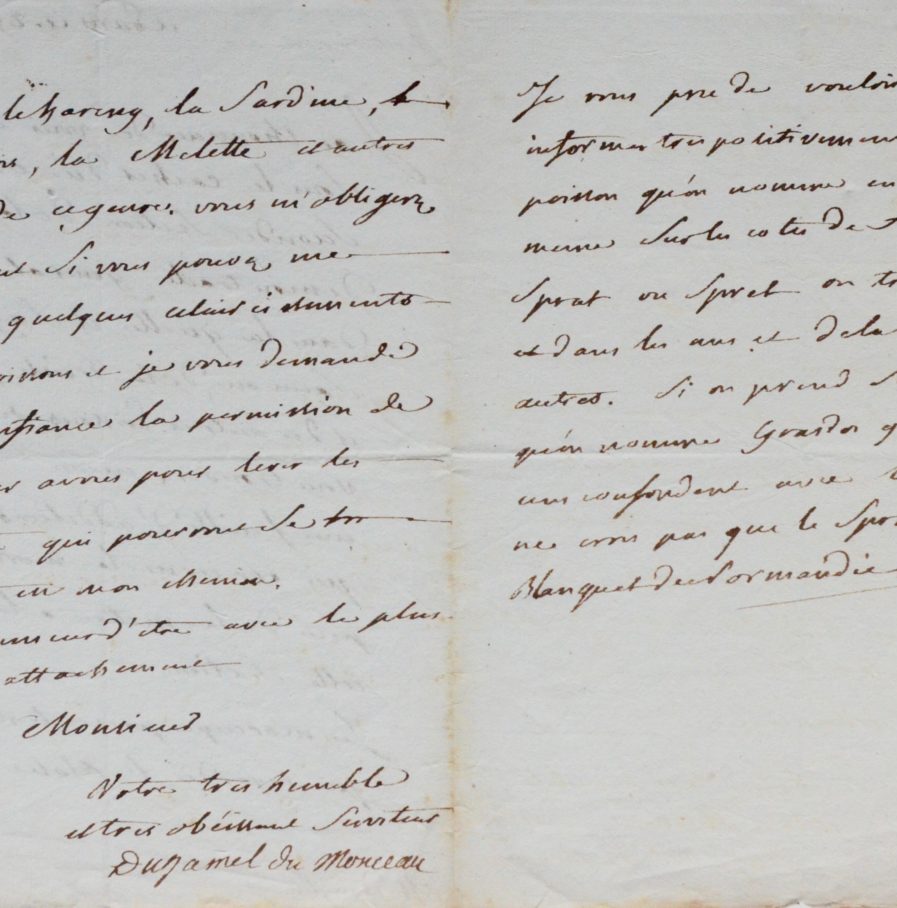 le hareng, la Sardine, le
la Melette et autres
de ce genre. vous m'obligerez
Si vous pouvez me
quelques eclaircissements
poissons et je vous demande
la permission de
avoues pour lever les
qui pourront se tr
en mon chemin.
d'etre avec le plus
attachement
Monsieur
Votre tres humble
et tres obéissant Serviteur
Duhamel du Monceau
Je vous prie de vouloir
informer tres positivement
poisson qu'on nomme en
meme Sur les cotes de
Sprat ou Spret on
et dans les uns et dela
autres. Si on prend
qu'on nomme
uns confondent avec
ne crois pas que le Spr
Blanquet de Normandie